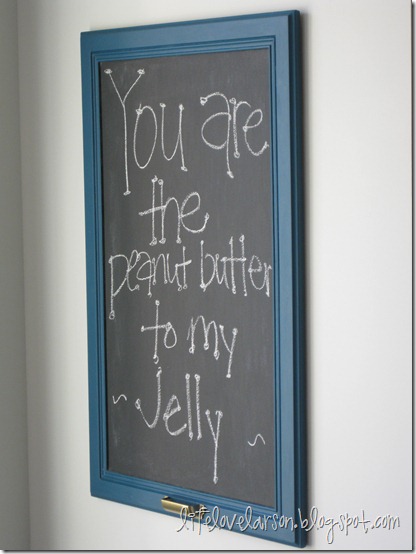 You are
the
peanut butter
to my
~ Jelly ~
lifelovelarson.blogspot.com